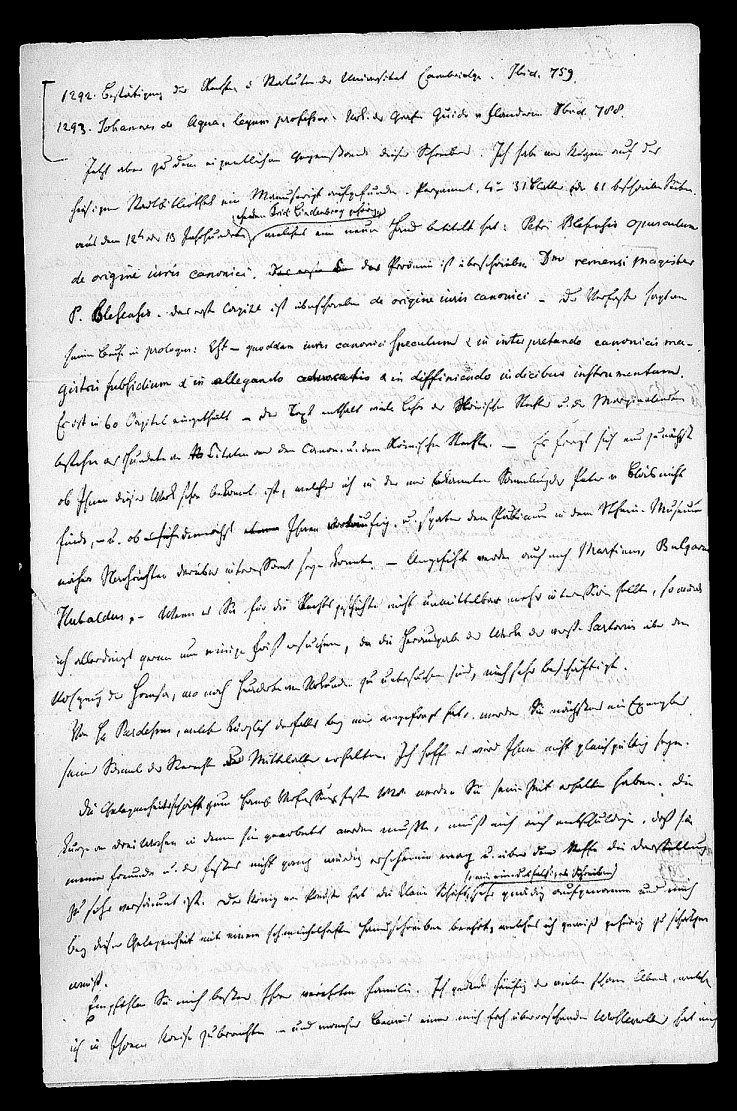 1292. Bestätigung der Rechte u Statuten der Universitat Cambridge. Ibid. 759.
1293. Johannes de Aqua, legum professor. Urk. des Grafen Guido v Flandern Ibid. 788.
Jetzt aber zu dem eigentlichen Gegenstande dieses Schreibens. Ich habe vor kurzem auf der
hiesigen Stadtbibliothek ein Manuscript aufgefunden. Pergament, 4° 31 Blätter oder 61 beschriebene Seiten.
aus dem 12ten oder 13 Jahrhundert, (ehedem Frid. Lindenbrog gehörig) welches eine neuere Hand betitelt hat: Petri Blesensis opusculum
de origine iuris canonici. das Proömium ist überschrieben Dno remensi magister
P. Blesensis. das erste Capitel ist überschrieben de origine iuris canonici – Der Verfasser sagt von
seinem Buche in prologus: Est – quoddam iuris canonici speculum & in interpretando canonicis ma-
gistri subsidium & in allegando advocatis & in diffiniendo iudicibus instrumentum.
Es ist in 60 Capitel eingetheilt – der Text enthält viele Lehren der Römischen Rechte u. die Marginalnoten
bestehen aus Hunderten von Citaten aus dem Canon. u. dem Römischen Rechte. – Es fragt sich nun zunächst
ob Ihnen dieses Werk schon bekannt ist, welches ich in den mir bekannten Sammlungen des Peter v Blois nicht
finde, – u. ob demnächst Ihnen vorläufig, u. später dem Publicum in dem Rhein. Museum
nähere Nachrichten darüber interessant seyn könnten. – Angeführt werden auch noch Martinus, Bulgarus
Hubaldus. – Wenn es Sie für die Rechtsgeschichte nicht unmittelbar mehr interessiren sollte, so würde
ich allerdings gern um einige Frist ersuchen, da die Herausgabe des Werks des verst. Sartorius über den
Ursprung der Hansa, wo noch Hunderte von Urkunden zu untersuchen sind, mich sehr beschäftigt.
Von H. Pardessus, welcher kürzlich deshalb bey mir angefragt hat, werden Sie nächstens ein Exemplar
seines Seerechts des Mittelalters erhalten. Ich hoffe es wird Ihnen nicht gleichgültig seyn.
Die Gelegenheitsschrift zum Hans. Verfassungsfeste 1828 werden Sie seiner Zeit erhalten haben. Die
Kürze von drei Wochen in denen sie gearbeitet werden mußte, muß mich auch entschuldigen, daß sie
meiner Freunde u. des Festes nicht ganz würdig erscheinen mag u. über dem Stoffe die Darstellung
zu sehr versäumt ist. Der König von Preußen hat die kleine Schrift, (wie ein ebenfalls Schreiben) sehr gnädig aufgenommen und mich
bey dieser Gelegenheit mit einem schmeichelhaften Handschreiben beehrt, welches ich gewiß gehörig zu schätzen
weiß.
Empfehlen Sie mich bestens Ihrer verehrten Familie. Ich gedenke häufig der vielen schönen Abende, welche
ich in Ihrem Kreise zubrachte – und mancher Beweis eines mich hoch überraschenden Wohlwollens hat mich